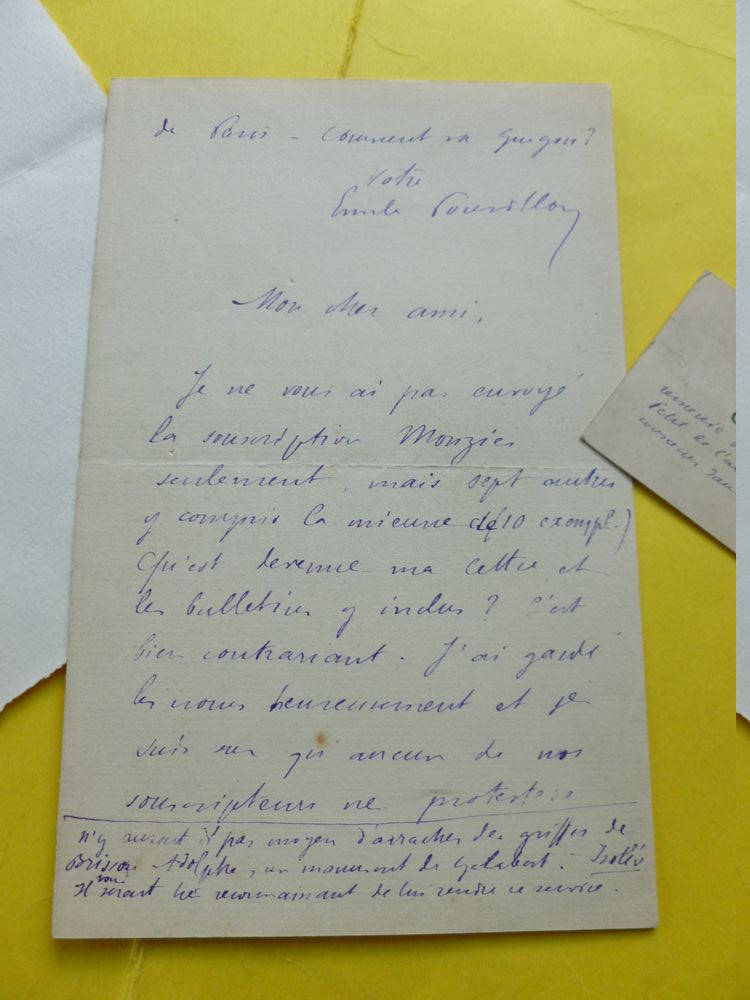 de Paris – Comment va Gurgon?
Votre
Emile Pouvillon
Mon cher ami,
Je ne vous ai pas envoyé
la souscription Mouzies
seulement, mais sept autres
y compris la mienne (de 10 exempl.)
Qu'est devenue ma lettre et
les bulletins y inclus ? C'est
bien contrariant. J'ai gardé
les noms heureusement et je
suis sur qu'aucun de nos
souscripteurs ne protestera
n'y aurait il pas moyen d'arracher des griffes de
Brisson Adolphe, un manuscrit de Galabert : Isolés
Il vous serait très reconnaissant de lui rendre ce service.